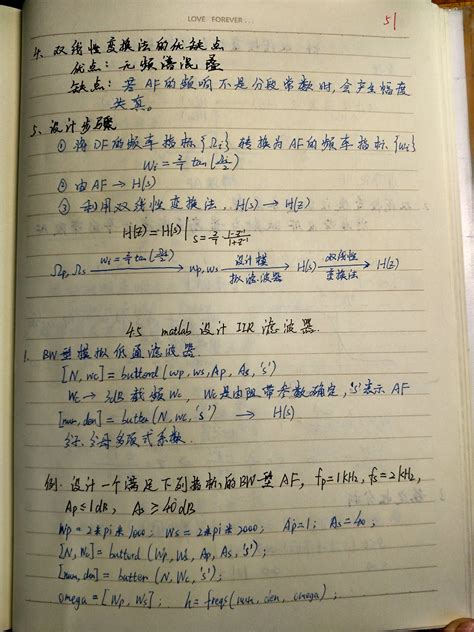 LOVE FOREVER...
51
4. 双线性变换法的优缺点
优点：无频谱混叠
缺点：若AF的频响不是分段常数时，会产生幅度
失真。
5、设计步骤
① 将DF的频率指标{Ωi}转换为AF的频率指标{ωi}
ωi = 2/T tan(Ωi/2)
② 由AF → H(s)
③ 利用双线性变换法，H(s) → H(z)
H(z) = H(s) | s = 2/T (1-z⁻¹)/(1+z⁻¹)
Ωp, Ωs —ωi=2/T tan(Ωi/2)→ ωp, ωs —设计模拟滤波器→ H(s) —双线性变换法→ H(z)
4.5 matlab设计IIR滤波器
1. BW型模拟低通滤波器.
[N, wc] = buttord (wp, ws, Ap, As, 's')
wc → 3dB截频wc, wc是由阻带参数确定, 's'表示AF
[num, den] = butter (N, wc, 's') → H(s)
分子、分母多项式系数.
例: 设计一个满足下列指标的BW型AF, fp=1kHz, fs=2kHz,
Ap≤1dB, As≥40dB
Wp = 2*pi*1000; Ws = 2*pi*2000; Ap=1; As=40;
[N, Wc] = buttord (Wp, Ws, Ap, As, 's');
[num, den] = butter (N, Wc, 's');
omega = [Wp, Ws]; h = freqs (num, den, omega);